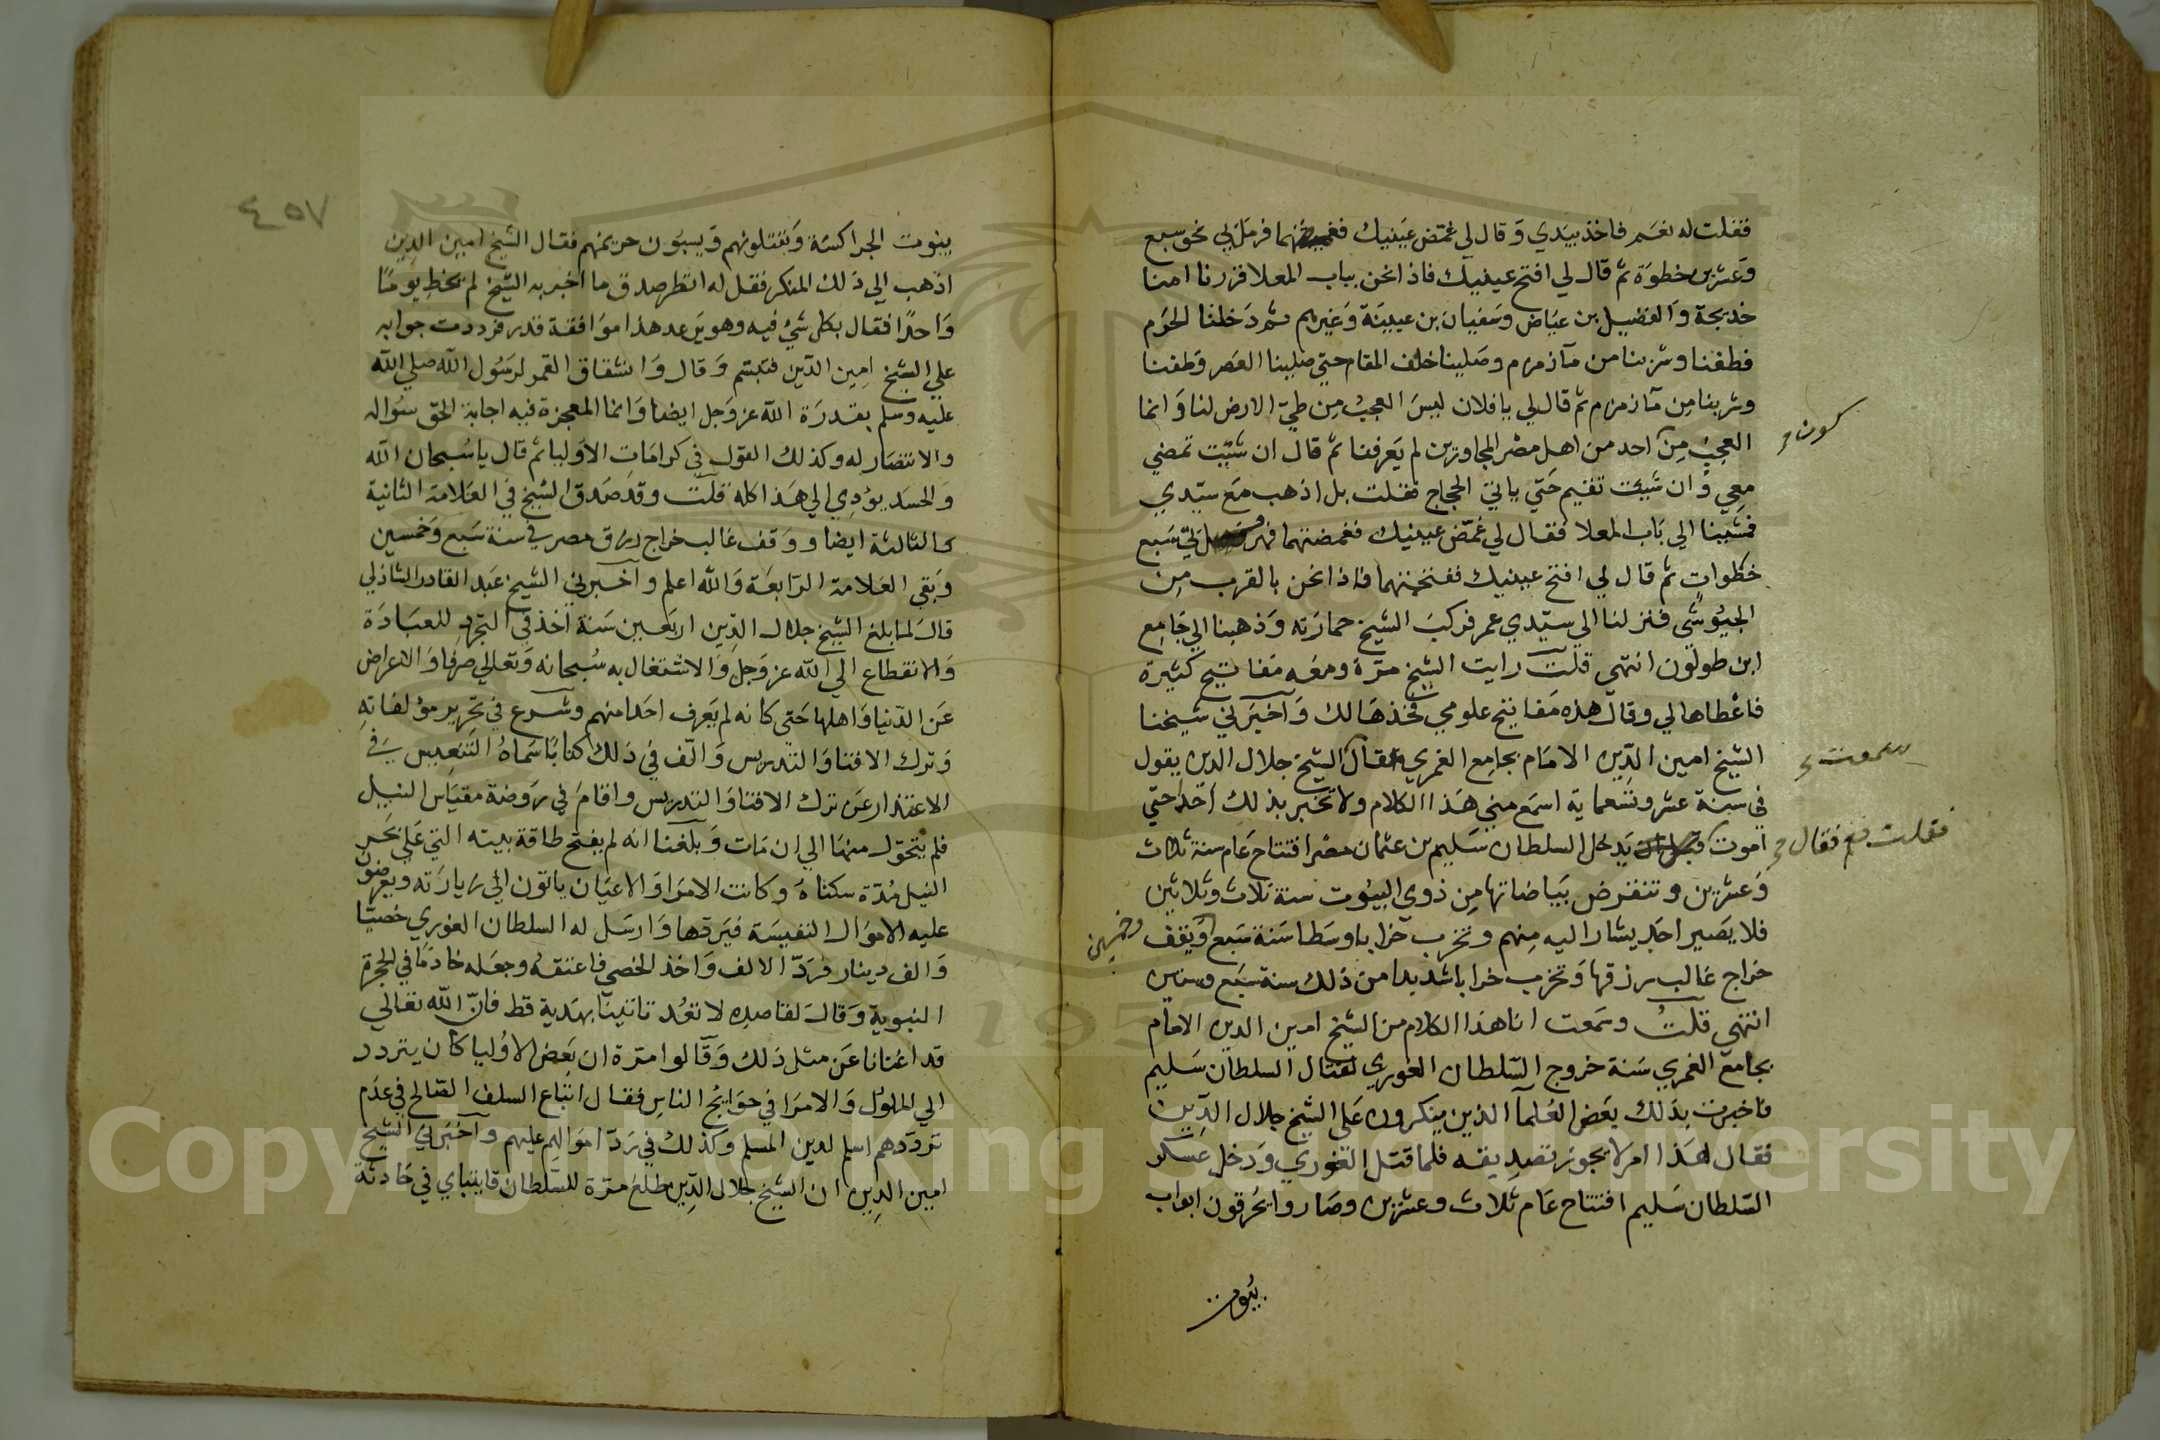 فقلت له نعم فاخذ بيدي وقال لي غمض عينيك فغمضتهما فرمل بي نحو سبع
وعشرين خطوة ثم قال لي افتح عينيك فاذا نحن بباب المعلا فزرنا امنا
خديجة والفضيل بن عياض وسفيان بن عيينة وغيرهم ثم دخلنا الحرم
فطفنا وشربنا من مآ زمزم وصلينا خلف المقام حتي صلينا العصر وطفنا
وشربنا من مآ زمزم ثم قال لي يا فلان ليس العجب من طي الارض لنا وانما
العجب من احد من اهل مصر المجاورين لم يعرفنا ثم قال ان شئت تمضي
كون
معي وان شئت تقيم حتي ياتي الحجاج فقلت بل اذهب مع سيدي
فمشينا الي باب المعلا فقال لي غمض عينيك فغمضتهما فهرول بي سبع
خطوات ثم قال لي افتح عينيك ففتحتهما فاذا نحن بالقرب من
الجيوشي فنزلنا الي سيدي عمر فركب الشيخ حمارته وذهبنا الي جامع
ابن طولون انتهي قلت رايت الشيخ مرة ومعه مفاتيح كثيرة
فاعطاها لي وقال هذه مفاتيح علومي فخذها لك واخبرني شيخنا
الشيخ امين الدين الامام بجامع الغمري قال الشيخ جلال الدين يقول
سمعت
في سنة عشر وتسعماية اسمع مني هذا الكلام ولا تخبر بذلك احدا حتي
اموت يدخل السلطان سليم بن عثمان مصر افتتاح عام سنة ثلاث
فقلت نعم فقال
وعشرين وتنقرض بياضاتها من ذوي البيوت سنة ثلاث وثلاثين
فلا يصير احد يشار اليه منهم وتخرب خرابا وسطا سنة سبع ويقف
وخمسين
خراج غالب رزقها وتخرب خرابا شديدا من ذلك سنة سبع وستين
انتهي قلت وسمعت انا هذا الكلام من الشيخ امين الدين الامام
بجامع الغمري سنة خروج السلطان الغوري لقتال السلطان سليم
فاخبرت بذلك بعض العلمآ الذين ينكرون علي الشيخ جلال الدين
فقال هذا امر لا يجوز تصديقه فلما قتل الغوري ودخل عسكر
السلطان سليم افتتاح عام ثلاث وعشرين وصاروا يحرقون ابواب
بيوت
٤٥٧
بيوت الجراكسة ويقتلونهم ويسبون حريمهم فقال الشيخ امين الدين
اذهب الي ذلك المنكر فقل له انظر صدق ما اخبر به الشيخ لم تخط يومًا
واحدًا فقال بكل شئ فيه وهو يرعد هذا موافقة قدر فرددت جوابه
علي الشيخ امين الدين فتبسم وقال وانشقاق القمر لرسول الله صلي الله
عليه وسلم بقدرة الله عز وجل ايضا وانما المعجزة فيه اجابة الحق سؤاله
والانتصار له وكذلك القول في كرامات الاوليا ثم قال يا سبحان الله
والحسد يؤدي الي هذا كله قلت وقد صدق الشيخ في العلامة الثانية
والثالثة ايضا ووقف غالب خراج رزق مصر في سنة سبع وخمسين
وبقي العلامة الرابعة والله اعلم واخبرني الشيخ عبد القادر الشاذلي
قال لما بلغ الشيخ جلال الدين اربعين سنة اخذ في التجرد للعبادة
والانقطاع الي الله عز وجل والاشتغال به سبحانه وتعالي صرفا والاعراض
عن الدنيا واهلها حتي كانه لم يعرف احدا منهم وشرع في تحرير مؤلفاته
وترك الافتا والتدريس والف في ذلك كتابًا سماه التنفيس في
الاعتذار عن ترك الافتا والتدريس واقام في روضة مقياس النيل
فلم يتحول منها الي ان مات وبلغنا انه لم يفتح طاقة بيته التي علي بحر
النيل مدة سكناه وكانت الامرا والاعيان ياتون الي زيارته ويعرضون
عليه الاموال النفيسة فيردها وارسل له السلطان الغوري خصيًا
والف دينار فرد الالف واخذ الخصي فاعتقه وجعله خادمًا في الحجرة
النبوية وقال لقاصده لا تعد تاتينا بهدية قط فان الله تعالي
قد اغنانا عن مثل ذلك وقالوا مرة ان بعض الاوليا كان يتردد
الي الملوك والامرا في حوايج الناس فقال اتباع السلف الصالح في عدم
ترددهم اسلم لدين المسلم وكذلك في رد اموالهم عليهم واخبرني الشيخ
امين الدين ان الشيخ جلال الدين طلع مرة للسلطان قايتباي في حادثة
Copyright © King Saud University
195